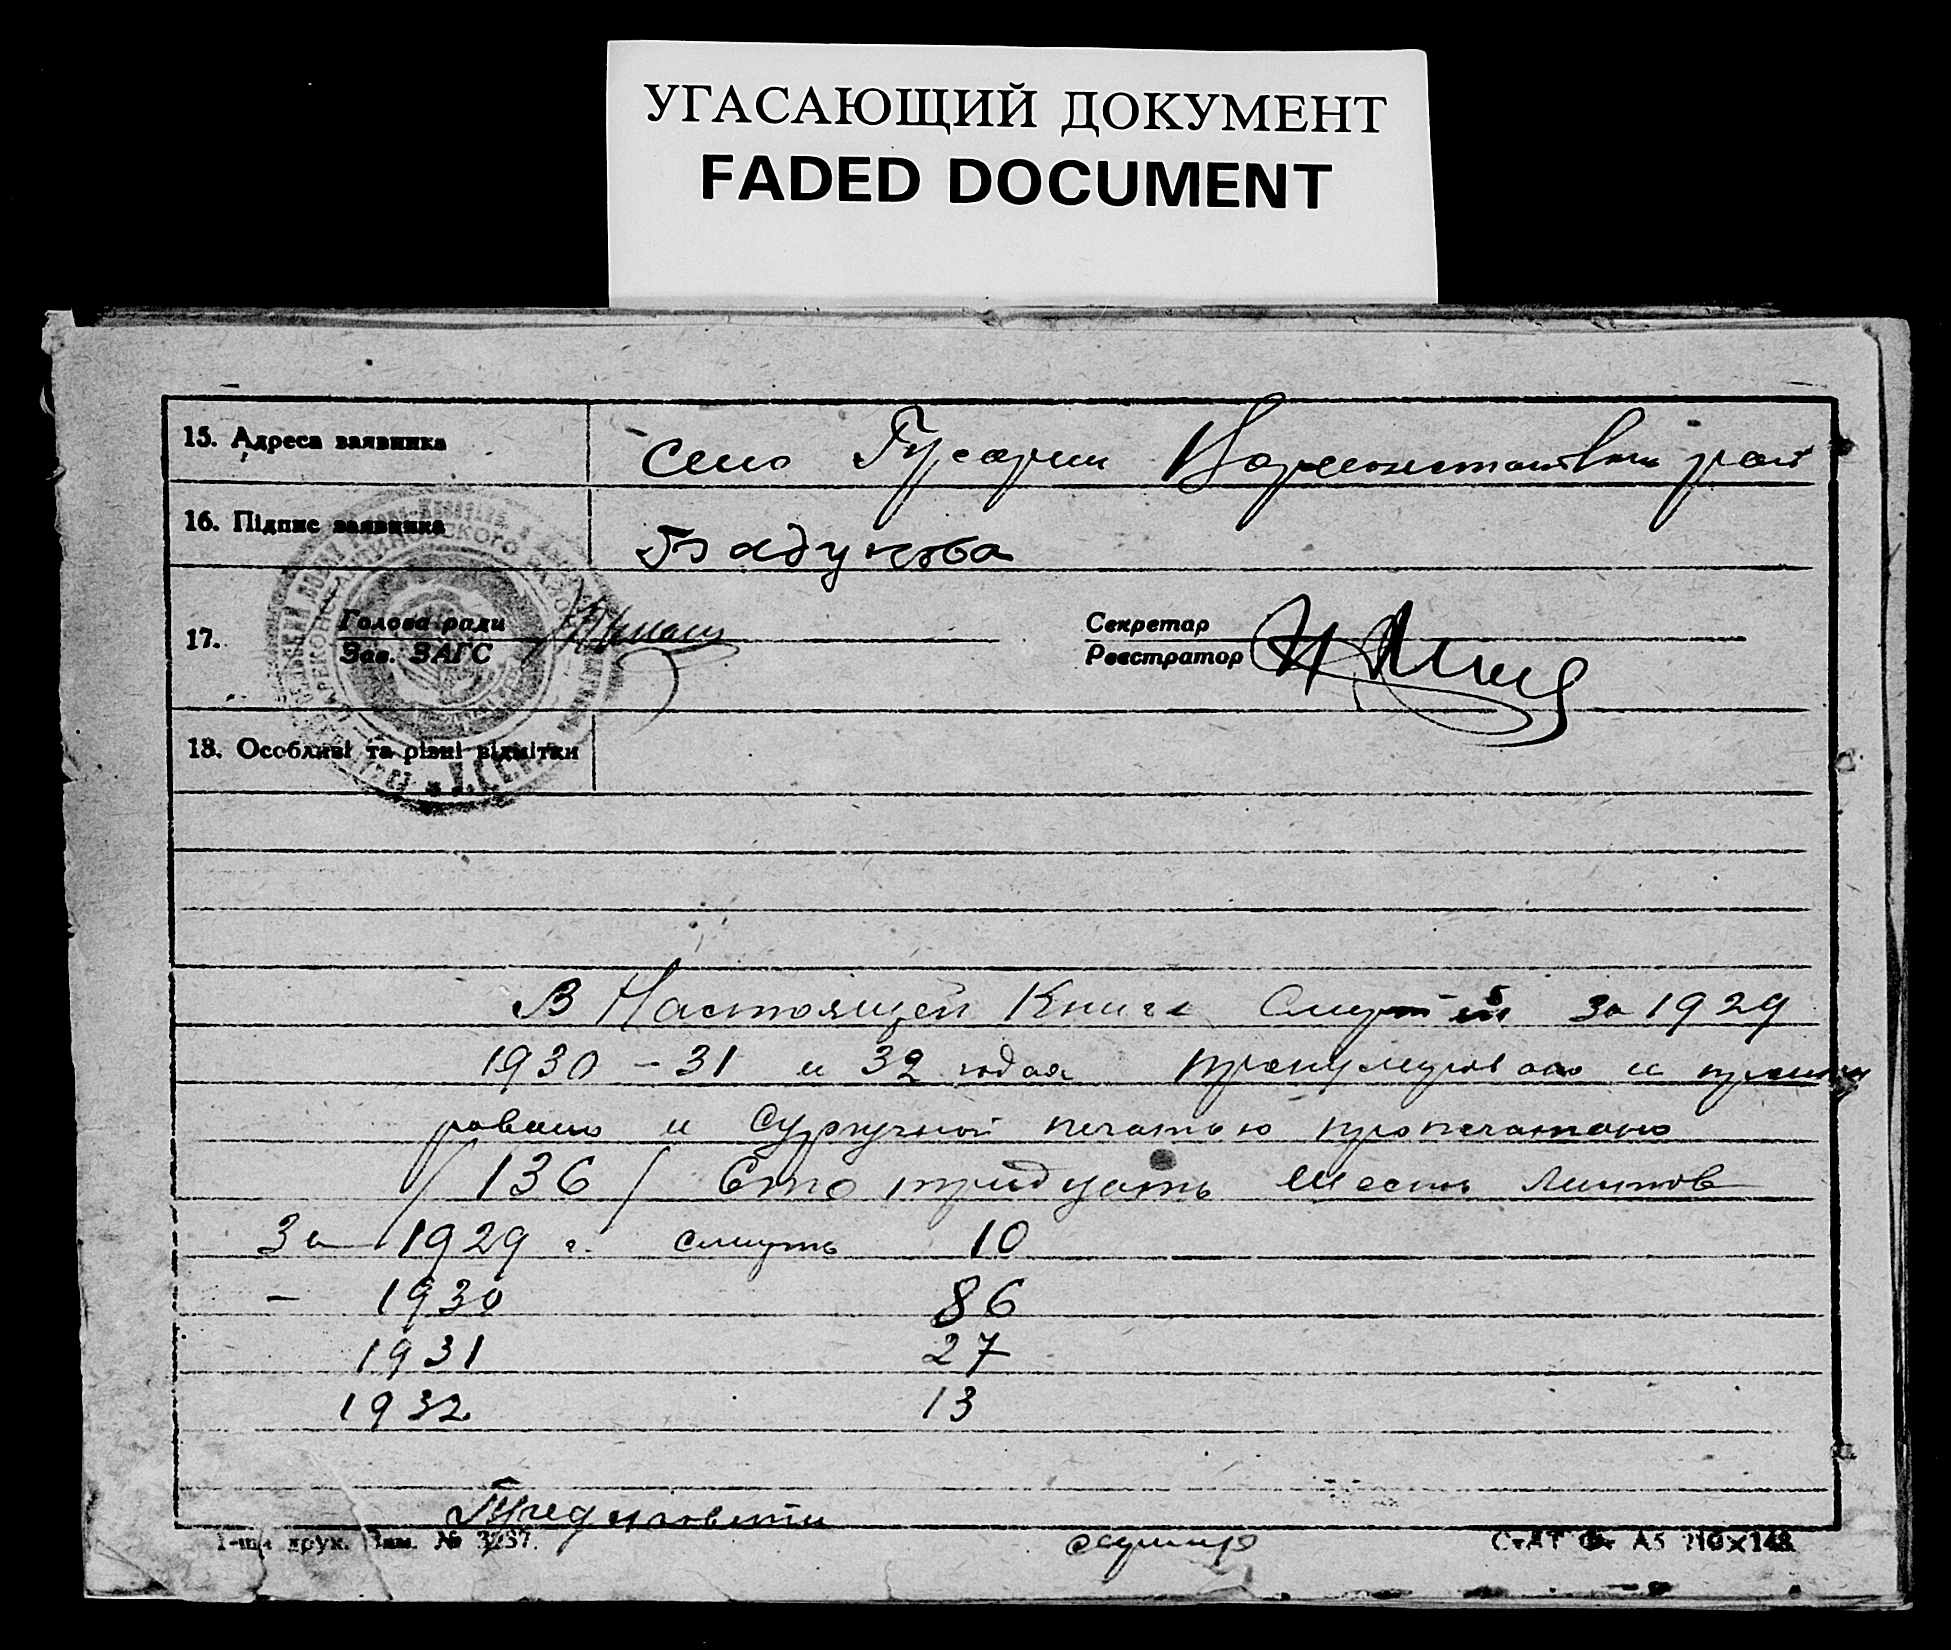 УГАСАЮЩИЙ ДОКУМЕНТ
FADED DOCUMENT
15. Адреса заявника
село Гусарки
16. Підпис заявника
17. Голова ради
Зав. ЗАГС
Секретар
Реєстратор
18. Особливі та різні відмітки
В Настоящей Книге Смертей за 1929
1930 - 31 и 32 годах пронумеровано и
ровано и сургучной печатью пропечатано
/136/ Сто тридцать шесть листов
За 1929 г. смерть 10
- 1930 86
1931 27
1932 13
друк. Зам. № 3237.
СтАТ Фт А5 210×148